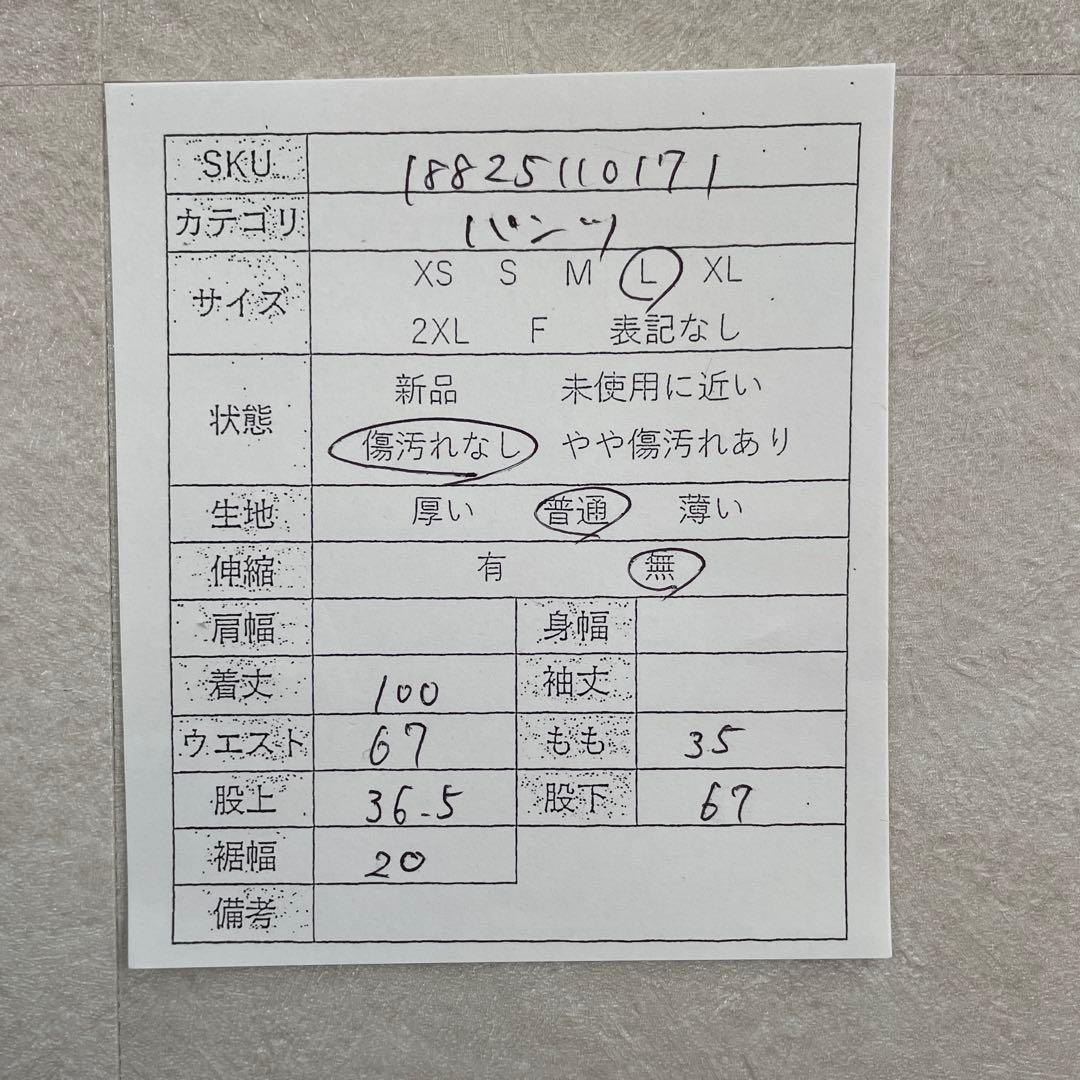 SKU 18825110171
カテゴリ パンツ
サイズ XS S M L XL
2XL F 表記なし
状態 新品 未使用に近い
傷汚れなし やや傷汚れあり
生地 厚い 普通 薄い
伸縮 有 無
肩幅 身幅
着丈 100 袖丈
ウエスト 67 もも 35
股上 36.5 股下 67
裾幅 20
備考